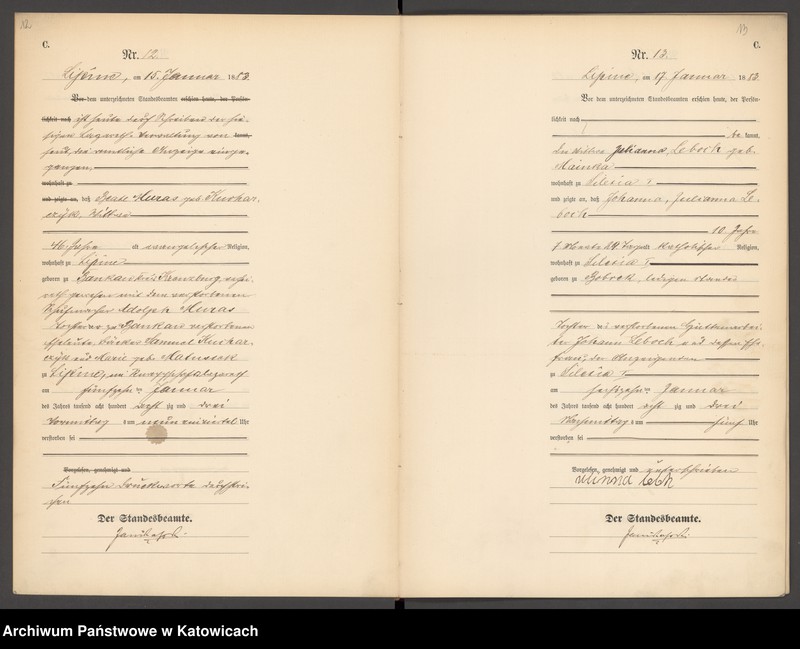 12
C.
Nr. 12
Lipine, am 15. Januar 1883
Vor dem unterzeichneten Standesbeamten erschien heute, der Persön-
lichkeit nach ist heute auf Schreiben der hie-
sigen Verwaltung von kannt,
die amtliche Anzeige einge-
gangen,
wohnhaft zu
und zeigte an, daß Beate Huras geb. Kuchar-
czyk, Wittwe
46 Jahre alt evangelischer Religion,
wohnhaft zu Lipine
geboren zu Bankau Kreis Kreuzburg,
gewesen mit dem verstorbenen
Adolph Huras
Tochter der zu Bankau verstorbenen
Eheleute, Samuel Kuchar-
czyk und Marie geb. Matusseck
zu Lipine, im Knappschaftslazareth
am fünfzehnten Januar
des Jahres tausend acht hundert acht zig und drei
Vormittags um neun einviertel Uhr
verstorben sei
Vorgelesen, genehmigt und
Fünfzehn Druckworte durchstri-
chen
Der Standesbeamte.
13
C.
Nr. 13
Lipine, am 17. Januar 1883
Vor dem unterzeichneten Standesbeamten erschien heute, der Persön-
lichkeit nach
be kannt,
die Wittwe Julianna Leboch geb.
Mainka
wohnhaft zu Silesia
und zeigte an, daß Johanna, Julianna Le-
boch
10 Jahre
Monate 29 Tage alt katholischer Religion,
wohnhaft zu Silesia
geboren zu Bobrek, ledigen Standes
Tochter des verstorbenen Hüttenarbei-
ter Johann Leboch und dessen Ehe-
frau, der Anzeigenden
zu Silesia
am sechszehnten Januar
des Jahres tausend acht hundert acht zig und drei
Nachmittags um fünf Uhr
verstorben sei
Vorgelesen, genehmigt und unterschrieben
Der Standesbeamte.
Archiwum Państwowe w Katowicach